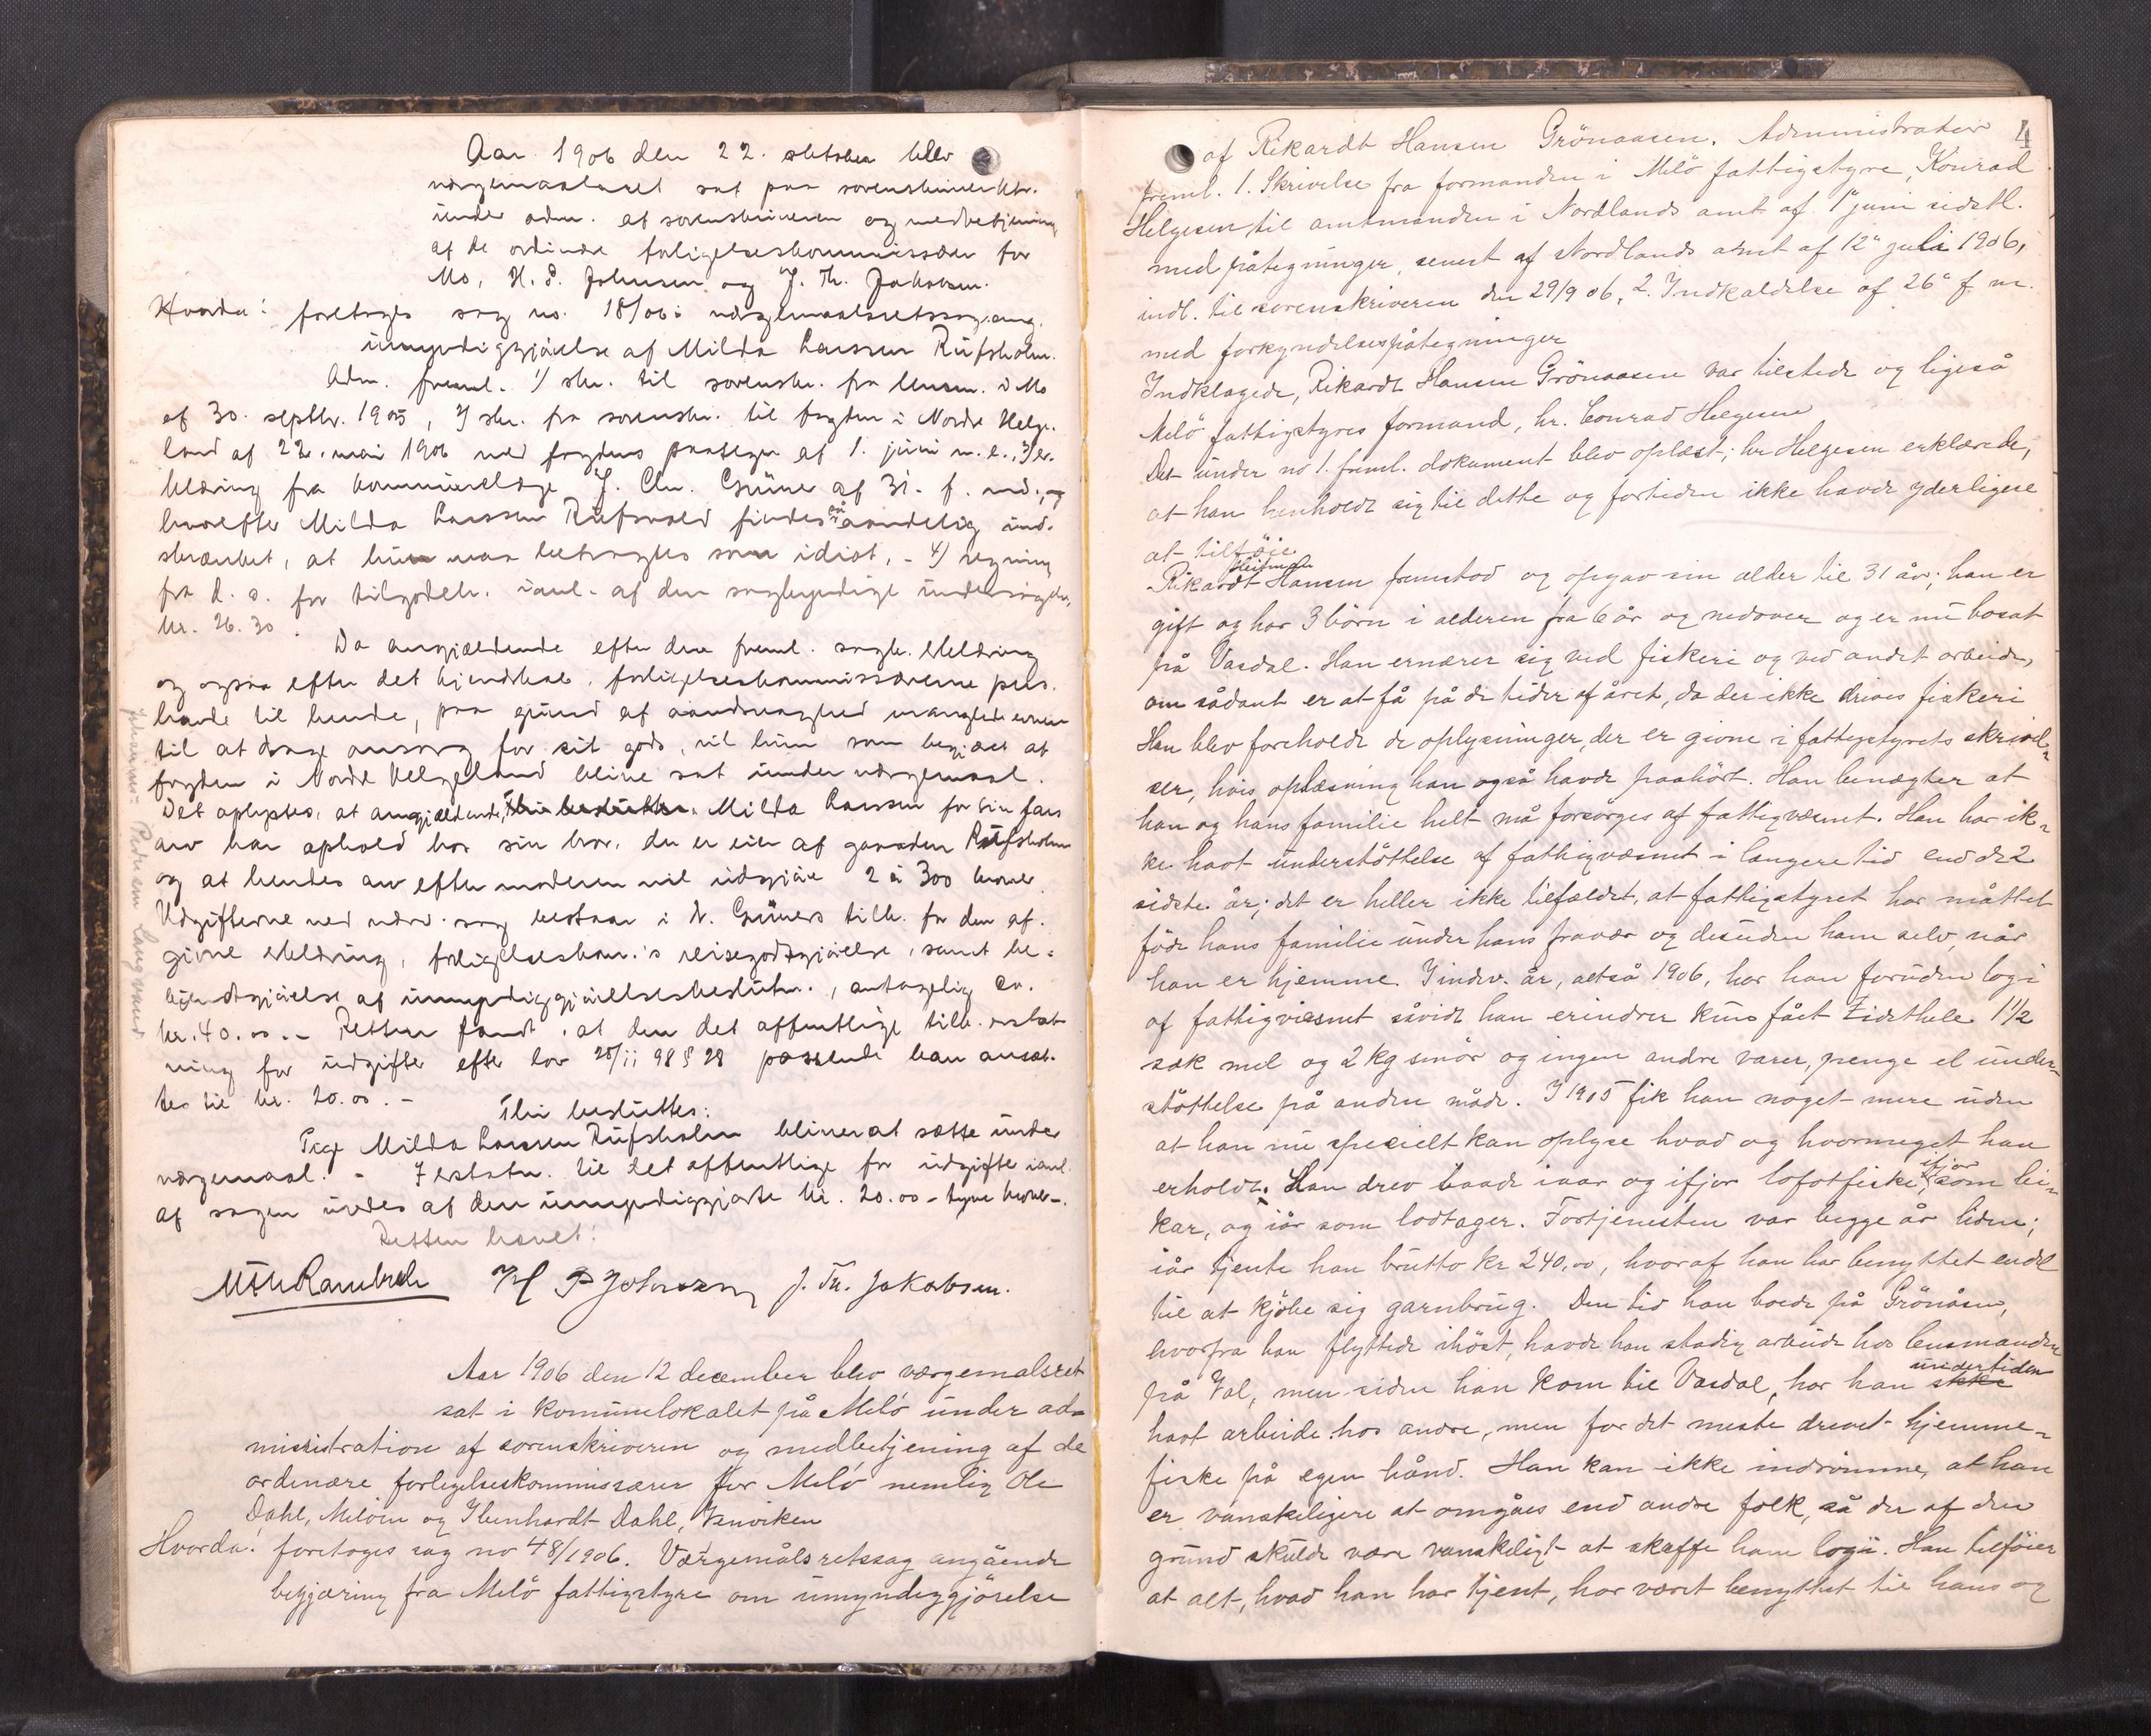 Aar 1906 den 22. oktober blev
værgemaalsret sat paa sorenskriverktr.
under adm. af sorenskriveren og medbetjening
af de ordinære forligelseskommissærer for
Mo, H. P. Johnsen og J. Th. Jakobsen.
Hvorda: foretoges sag no. 18/06: værgemaalsretssag ang.
umyndiggjørelse af Milda Larssen Rufsholm.
Adm. freml. 1/ skr. til sorenskr. fra lensm. i Mo
af 30. septbr. 1905, 2/ skr. fra sorenskr. til fogden i Nordre Helge-
land af 22. mai 1906 med fogdens paategn. af 1. juni n. e., 3/ er-
klæring fra kommunelæge J. Chr. Grüner af 31. f. md.,
hvorefter Milda Larssen findes aandelig ind-
skrænket, at hun maa betragtes som idiot, - 4/ regning
fra d. s. for tilgodeh. i anl. af den sagkyndige undersøgelse,
kr. 26.30.
Da angjældende efter den freml. sagk. erklæring
og ogsaa efter det kjendskab, forligelseskommissærerne pers.
havde til hende, paa grund af aandssvaghed manglede evnen
til at drage omsorg for sit gods, vil hun som begjært af
fogden i Nordre Helgeland blive sat under værgemaal.
Det oplystes, at angjældende, Thi besluttes. Milda Larssen for sin fars
arv har ophold hos sin bror, der er eier af gaarden Rufsholm
og at hendes arv efter moderen vil udgjøre 2 à 300 kroner.
Udgifterne ved nærv. sag bestaar i dr. Grüners tilk. for den af-
givne erklæring, forligelseskom.'s reisegodtgjørelse, samt be-
kjendtgjørelse af umyndiggjørelsesbeslutn., antagelig ca.
kr. 40.00.- Retten fandt, at den det offentlige tilk. erstat-
ning for udgifter efter lov 28/11 98 § 28 passende kan ansæt-
tes til kr. 20.00.-
Thi besluttes:
Pige Milda Larssen Rufsholm bliver at sætte under
værgemaal. - I erstatn. til det offentlige for udgifter i anl.
af sagen udredes af den umyndiggjorte kr. 20.00 - tyve kroner-.
Retten hævet:
H P Johnsen J. Th. Jakobsen.
Aar 1906 den 12 december blev værgemalsret
sat i kommunelokalet på Melö under ad-
ministration af sorenskriveren og medbetjening af de
ordinære forligelseskommissærer for Melö nemlig Ole
Dahl, Melöen og Ebenhardt Dahl,
Hvorda: foretoges sag no 48/1906. Værgemålsretssag angående
begjæring fra Melö fattigstyre om umyndiggjörelse
4
af Rikardt Hansen Grönaasen. Administrator
freml. 1. Skrivelse fra formanden i Melö fattigstyre, Konrad
Helgesen, til amtmanden i Nordlands amt af 1ste juni sidstl.
med påtegninger, senest af Nordlands amt af 12te juli 1906,
indl. til sorenskriveren den 29/9 06, 2. Indkaldelse af 26te f. m.
med forkyndelsespåtegninger
Indklagede, Rikardt Hansen Grönaasen var tilstede og ligeså
Melö fattigstyres formand, hr. Conrad Helgesen
Det under no 1. freml. dokument blev oplæst; hr Helgesen erklærede,
at han henholdt sig til dette og fortiden ikke havde yderligere
at tilföie
Rikardt Hansen fremstod og opgav sin alder til 31 år; han er
gift og har 3 börn i alderen fra 6 år og nedover og er nu bosat
på Vasdal. Han ernærer sig ved fiskeri og ved andet arbeide,
om sådant er at få på de tider af året, da der ikke drives fiskeri
Han blev foreholdt de oplysninger, der er givne i fattigstyrets skrivel-
ser, hvis oplæsning han også havde paahört. Han benægter at
han og hans familie helt må forsörges af fattigvæsnet. Han har ik-
ke havt understöttelse af fattigvæsnet i længere tid end de 2
sidste år; det er heller ikke tilfældet, at fattigstyret har måttet
föde hans familie under hans fravær og desuden ham selv, når
han er hjemme. I indev. år, altså 1906, har han foruden logi
af fattigvæsnet såvidt han erindrer kuns fået tidsthele 1½
sæk mel og 2 kg smör og ingen andre varer, penge el under-
stöttelse på anden måde. I 1905 fik han noget mere uden
at han nu specielt kan oplyse hvad og hvormeget han
erholdt. Han drev baade iaar og ifjor lofotfiske, ifjor som lei-
kar, og iår som lodtager. Fortjenesten var begge år liden;
iår tjente han brutto kr 240,00, hvoraf han har benyttet endel
til at kjöbe sig garnbrug. Den tid han boede på Grönåsen,
hvorfra han flyttede ihöst, havde han stadig arbeide hos lensmanden
på Val, men siden han kom til Vasdal, har han ikke undertiden
havt arbeide hos andre, men for det meste drevet hjemme-
fiske på egen hånd. Han kan ikke indrömme, at han
er vanskeligere at omgåes end andre folk, så der af den
grund skulde være vanskeligt at skaffe ham logi. Han tilföier
at alt, hvad han har tjent, har været benyttet til hans og